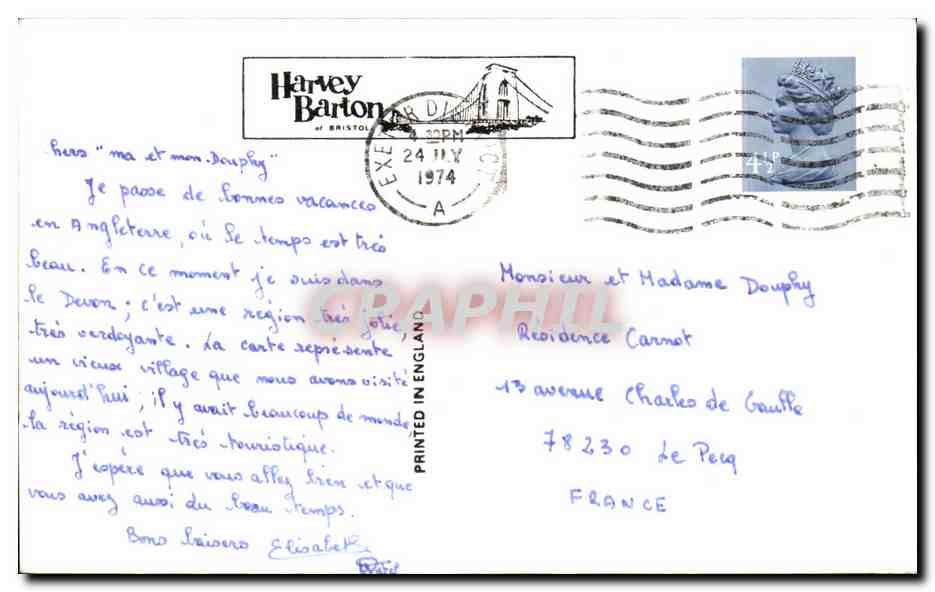 Harvey
Barton
of BRISTOL
EXETER DISTRICT
4.30PM
24 JLY
1974
A
4½P
hers "ma et mon Douphy"
Je passe de bonnes vacances
en Angleterre, où le temps est très
beau. En ce moment je suis dans
le Devon; c'est une région très jolie,
très verdoyante. La carte représente
un vieux village que nous avons visité
aujourd'hui; il y avait beaucoup de monde,
la région est très touristique.
J'espère que vous allez bien et que
vous avez aussi du beau temps.
Bons baisers Elisabeth
PRINTED IN ENGLAND
CRAPHIL
Monsieur et Madame Douphy
Residence Carnot
13 avenue Charles de Gaulle
78230 Le Pecq
FRANCE